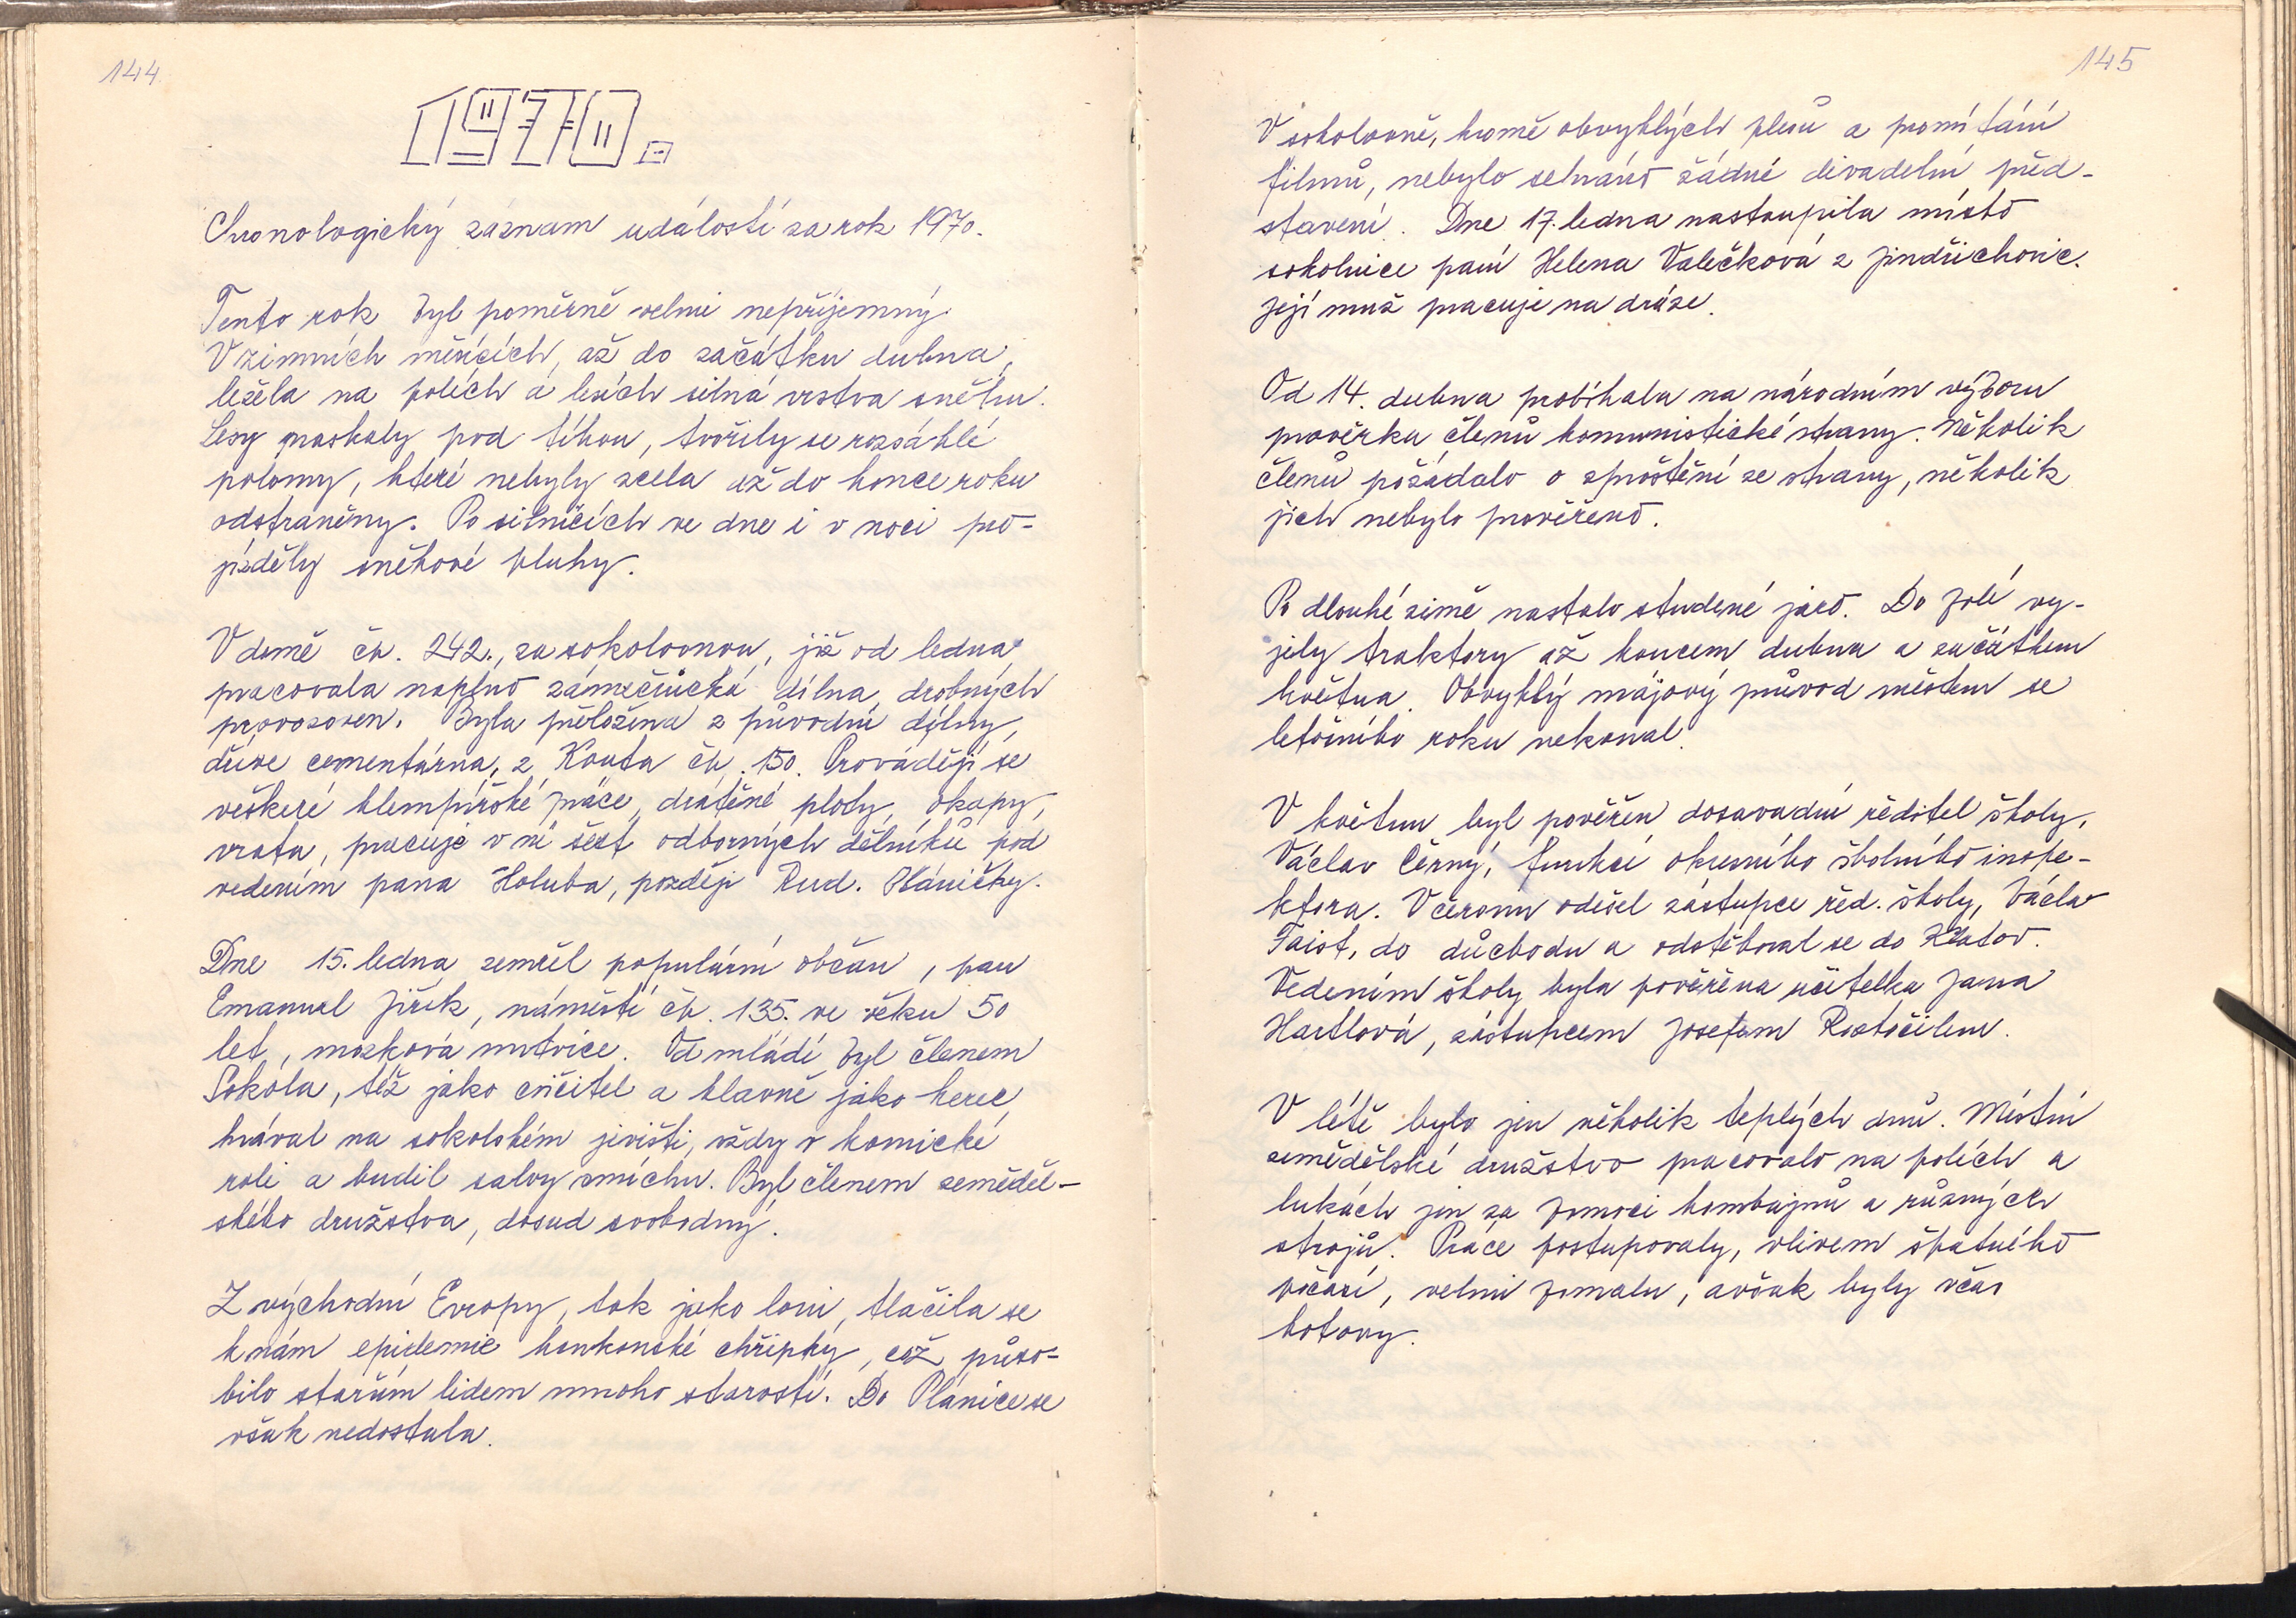 144
1970.
Chronologický záznam událostí za rok 1970.
Tento rok byl poměrně velmi nepříjemný.
V zimních měsících, až do začátku dubna,
ležela na polích a lesích silná vrstva sněhu.
Lesy praskaly pod tíhou, tvořily se rozsáhlé
polomy, které nebyly zcela až do konce roku
odstraněny. Po silnicích ve dne i v noci pro-
jížděly sněhové pluhy.
V domě čp. 242., za sokolovnou, již od ledna
pracovala naplno zámečnická dílna drobných
provozoven. Byla přeložena z původní dílny,
dříve cementárna, z Kouta čp. 150. Provádějí se
veškeré klempířské práce, drátěné ploty, okapy,
vrata, pracuje v ní šest odborných dělníků pod
vedením pana Holuba, později Rud. Hláničky.
Dne 15. ledna zemřel populární občan, pan
Emanuel Jiřík, náměstí čp. 135. ve věku 50
let, mozková mrtvice. Od mládí byl členem
Sokola, též jako cvičitel a hlavně jako herec,
hrával na sokolském jevišti, vždy v komické
roli a budil salvy smíchu. Byl členem zeměděl-
ského družstva, dosud svobodný.
Z východní Evropy, tak jako loni, tlačila se
k nám epidemie honkonské chřipky, což půso-
bilo starším lidem mnoho starostí. Do Plánice se
však nedostala.
145
V sokolovně, kromě obvyklých plesů a promítání
filmů, nebylo sehráno žádné divadelní před-
stavení. Dne 17. ledna nastoupila místo
sokolnice paní Helena Valečková z Jindřichovic.
Její muž pracuje na dráze.
Od 14. dubna probíhala na národním výboru
prověrka členů komunistické strany. Několik
členů požádalo o zproštění ze strany, několik
jich nebylo prověřeno.
Po dlouhé zimě nastalo studené jaro. Do polí vy-
jely traktory až koncem dubna a začátkem
května. Obvyklý májový průvod městem se
letošního roku nekonal.
V květnu byl pověřen dosavadní ředitel školy,
Václav Černý, funkcí okresního školního inspe-
ktora. V červnu odešel zástupce řed. školy, Václav
Faist, do důchodu a odstěhoval se do Klatov.
Vedením školy byla pověřena učitelka Jana
Hartlová, zástupcem Josefem Roztočilem.
V létě bylo jen několik teplých dnů. Místní
zemědělské družstvo pracovalo na polích a
lukách jen za pomoci kombajnů a různých
strojů. Práce postupovaly, vlivem špatného
počasí, velmi pomalu, avšak byly včas
hotovy.